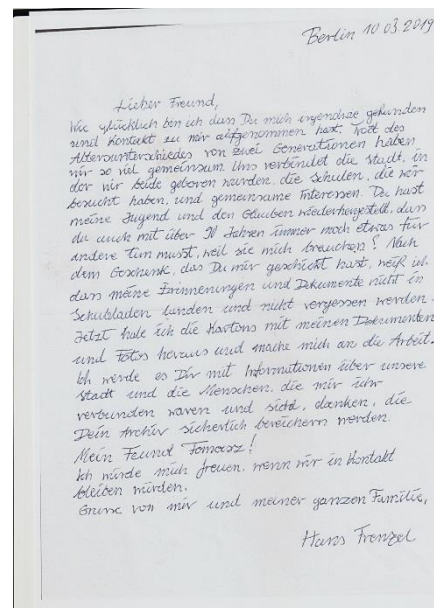 Berlin 10 03.2019
Lieber Freund,
Wie glücklich bin ich dass Du mich irgendwie gefunden
und Kontakt zu mir aufgenommen hast. Trott des
Altersunterschiedes von zwei Generationen haben
wir so viel gemeinsam Uns verbindet die Stadt, in
der wir beide geboren wurden, die Schulen, die wir
besucht haben, und gemeinsame Interessen. Du hast
meine Jugend und den Glauben wiederhergestellt, dass
du auch mit über 90 Jahren immer noch etwas für
andere tun musst, weil sie mich brauchen! Nach
dem Geschenk, das Du mir geschickt hast, weiß ich
dass meine Erinnerungen und Dokumente nicht in
Schubladen landen und nicht vergessen werden.
Jetzt hole ich die Kartons mit meinen Dokumenten
und Fotos heraus und mache mich an die Arbeit.
Ich werde es Dir mit Informationen über unsere
Stadt und die Menschen, die mir ihr
verbunden waren und sind, danken, die
Dein Archiv sicherlich bereichern werden.
Mein Feund Tomasz!
Ich würde mich freuen, wenn wir in Kontakt
bleiben würden.
Grüsse von mir und meiner ganzen Familie,
Hans Frenzel